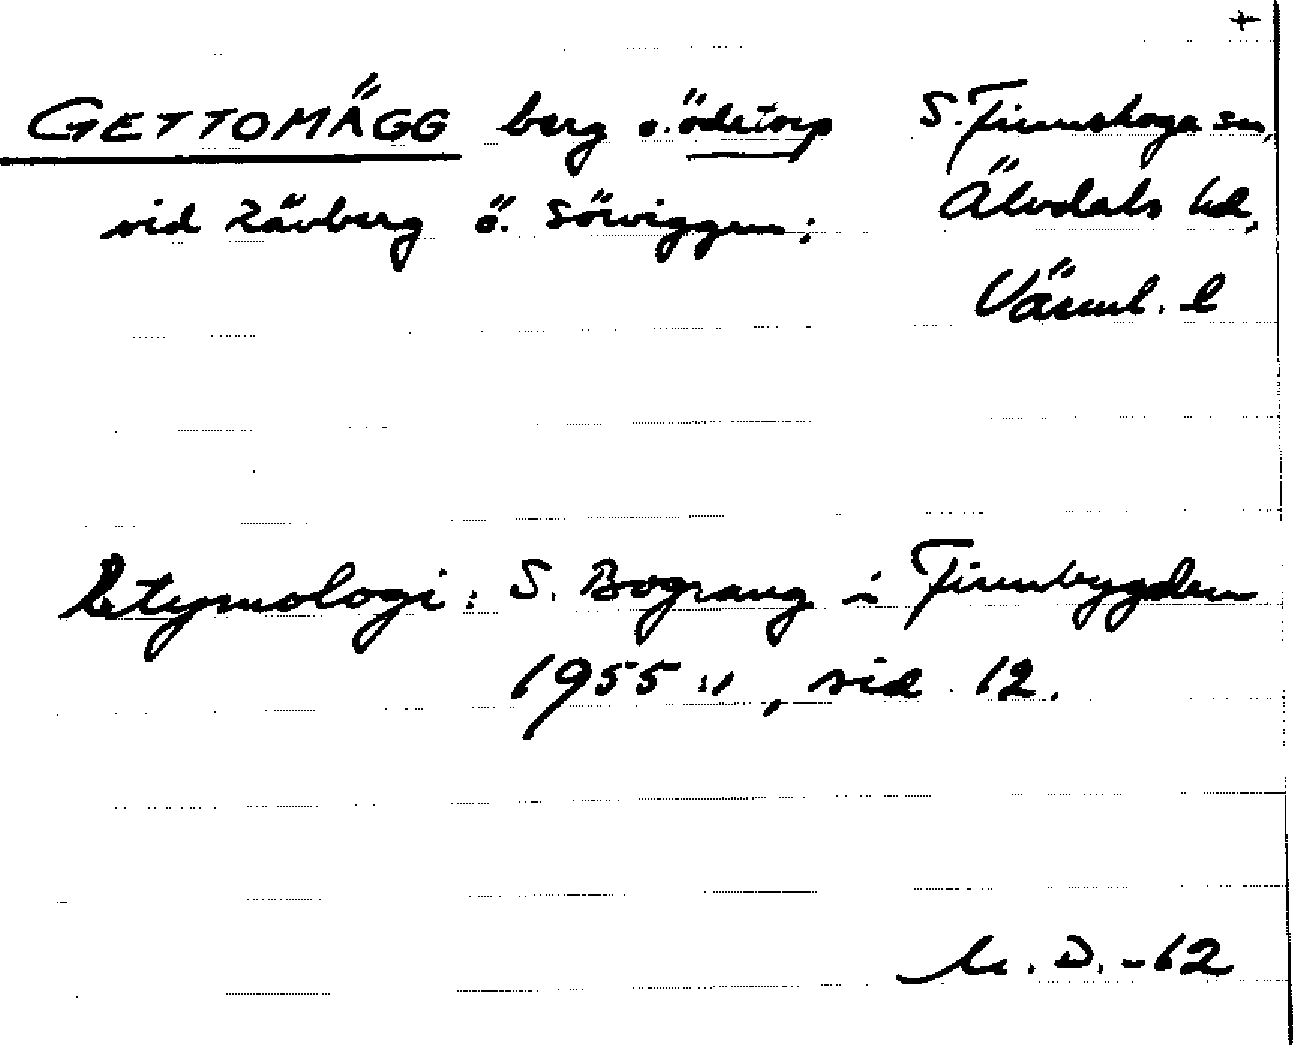 +
GETTOMÄGG berg o. ödetorp S. Finnskoga sn,
vid Rävberg ö. Sörviggen; Älvdals hd,
Värml. l
Etymologi: S. Bograng i Finnbygden
1955:1, sid 12.
D. -62